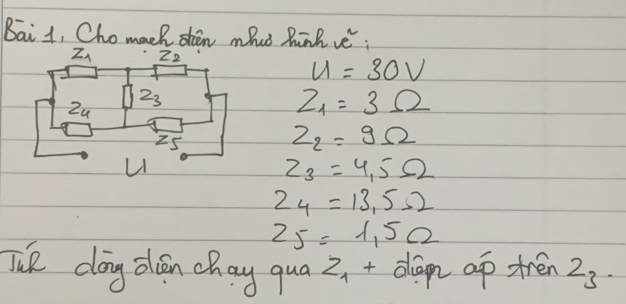 Bài 1, Cho mạch điện như hình vẽ:
Z1 Z2
U = 30V
Z3
Z1 = 3 Ω
Z4
Z5
Z2 = 9 Ω
U
Z3 = 4,5 Ω
Z4 = 13,5 Ω
Z5 = 1,5 Ω
Tính dòng điện chạy qua Z1 + điện áp trên Z3.